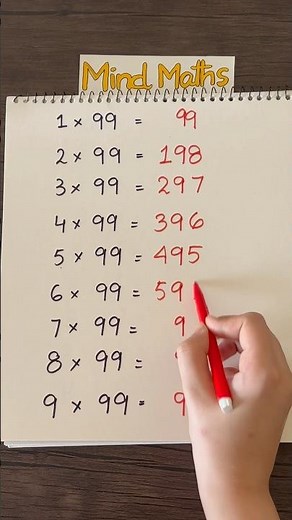 Mind Maths
1 × 99 = 99
2 × 99 = 198
3 × 99 = 297
4 × 99 = 396
5 × 99 = 495
6 × 99 = 59
7 × 99 = 9
8 × 99 =
9 × 99 = 9